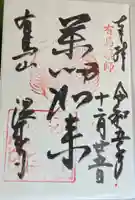 奉拝
令和五年
十二月廿五日
薬師如来
有馬山
温泉寺